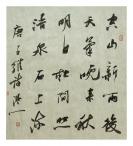 空山新雨後
天氣晚來秋
明月松間照
清泉石上流
庚子